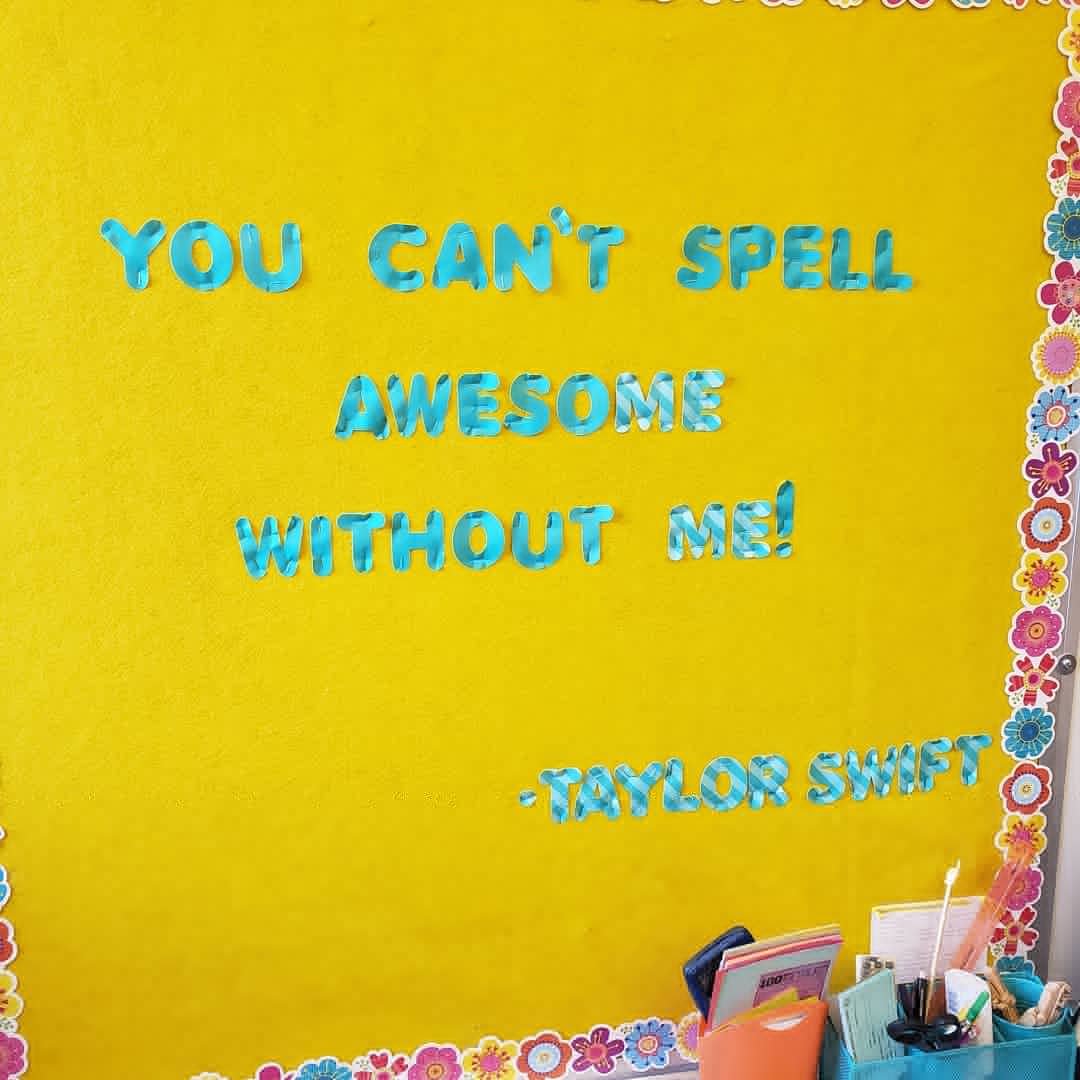 YOU CAN'T SPELL
AWESOME
WITHOUT ME!
-TAYLOR SWIFT
400